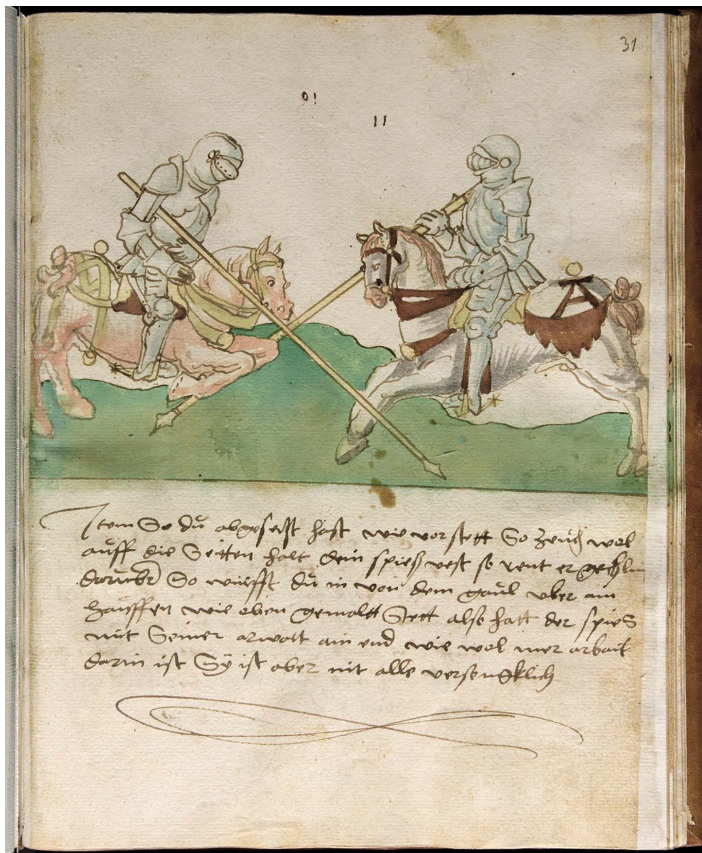 31
11
Item So dü abgesetzt hast wie vor stett So zeüch wol
auff die Seitten halt dein spieß vest so rent er gehling
darüber So würfft dü in von dem gaul vber ain
hauffen wie oben gemaltt Stett also hatt der spies
mit Seiner arwatt ain end wie wol mer arbait
darin ist Sÿ ist aber nit alle verfengklich